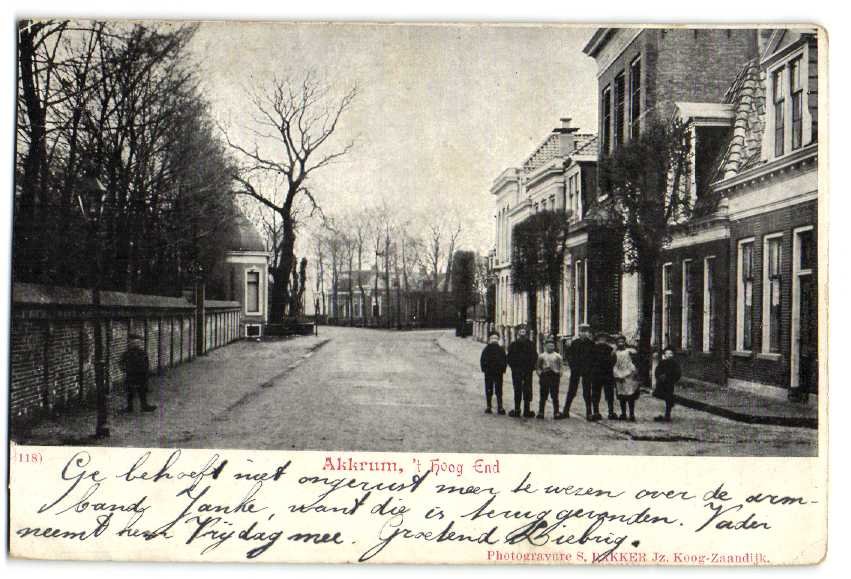 (118)
Akkrum, 't Hoog End
Ge behoeft niet ongerust meer te wezen over de arm-
band Janke, want die is teruggevonden. Vader
neemt hem Vrijdag mee. Groetend Liebrig.
Photogravure S. BAKKER Jz. Koog-Zaandijk.